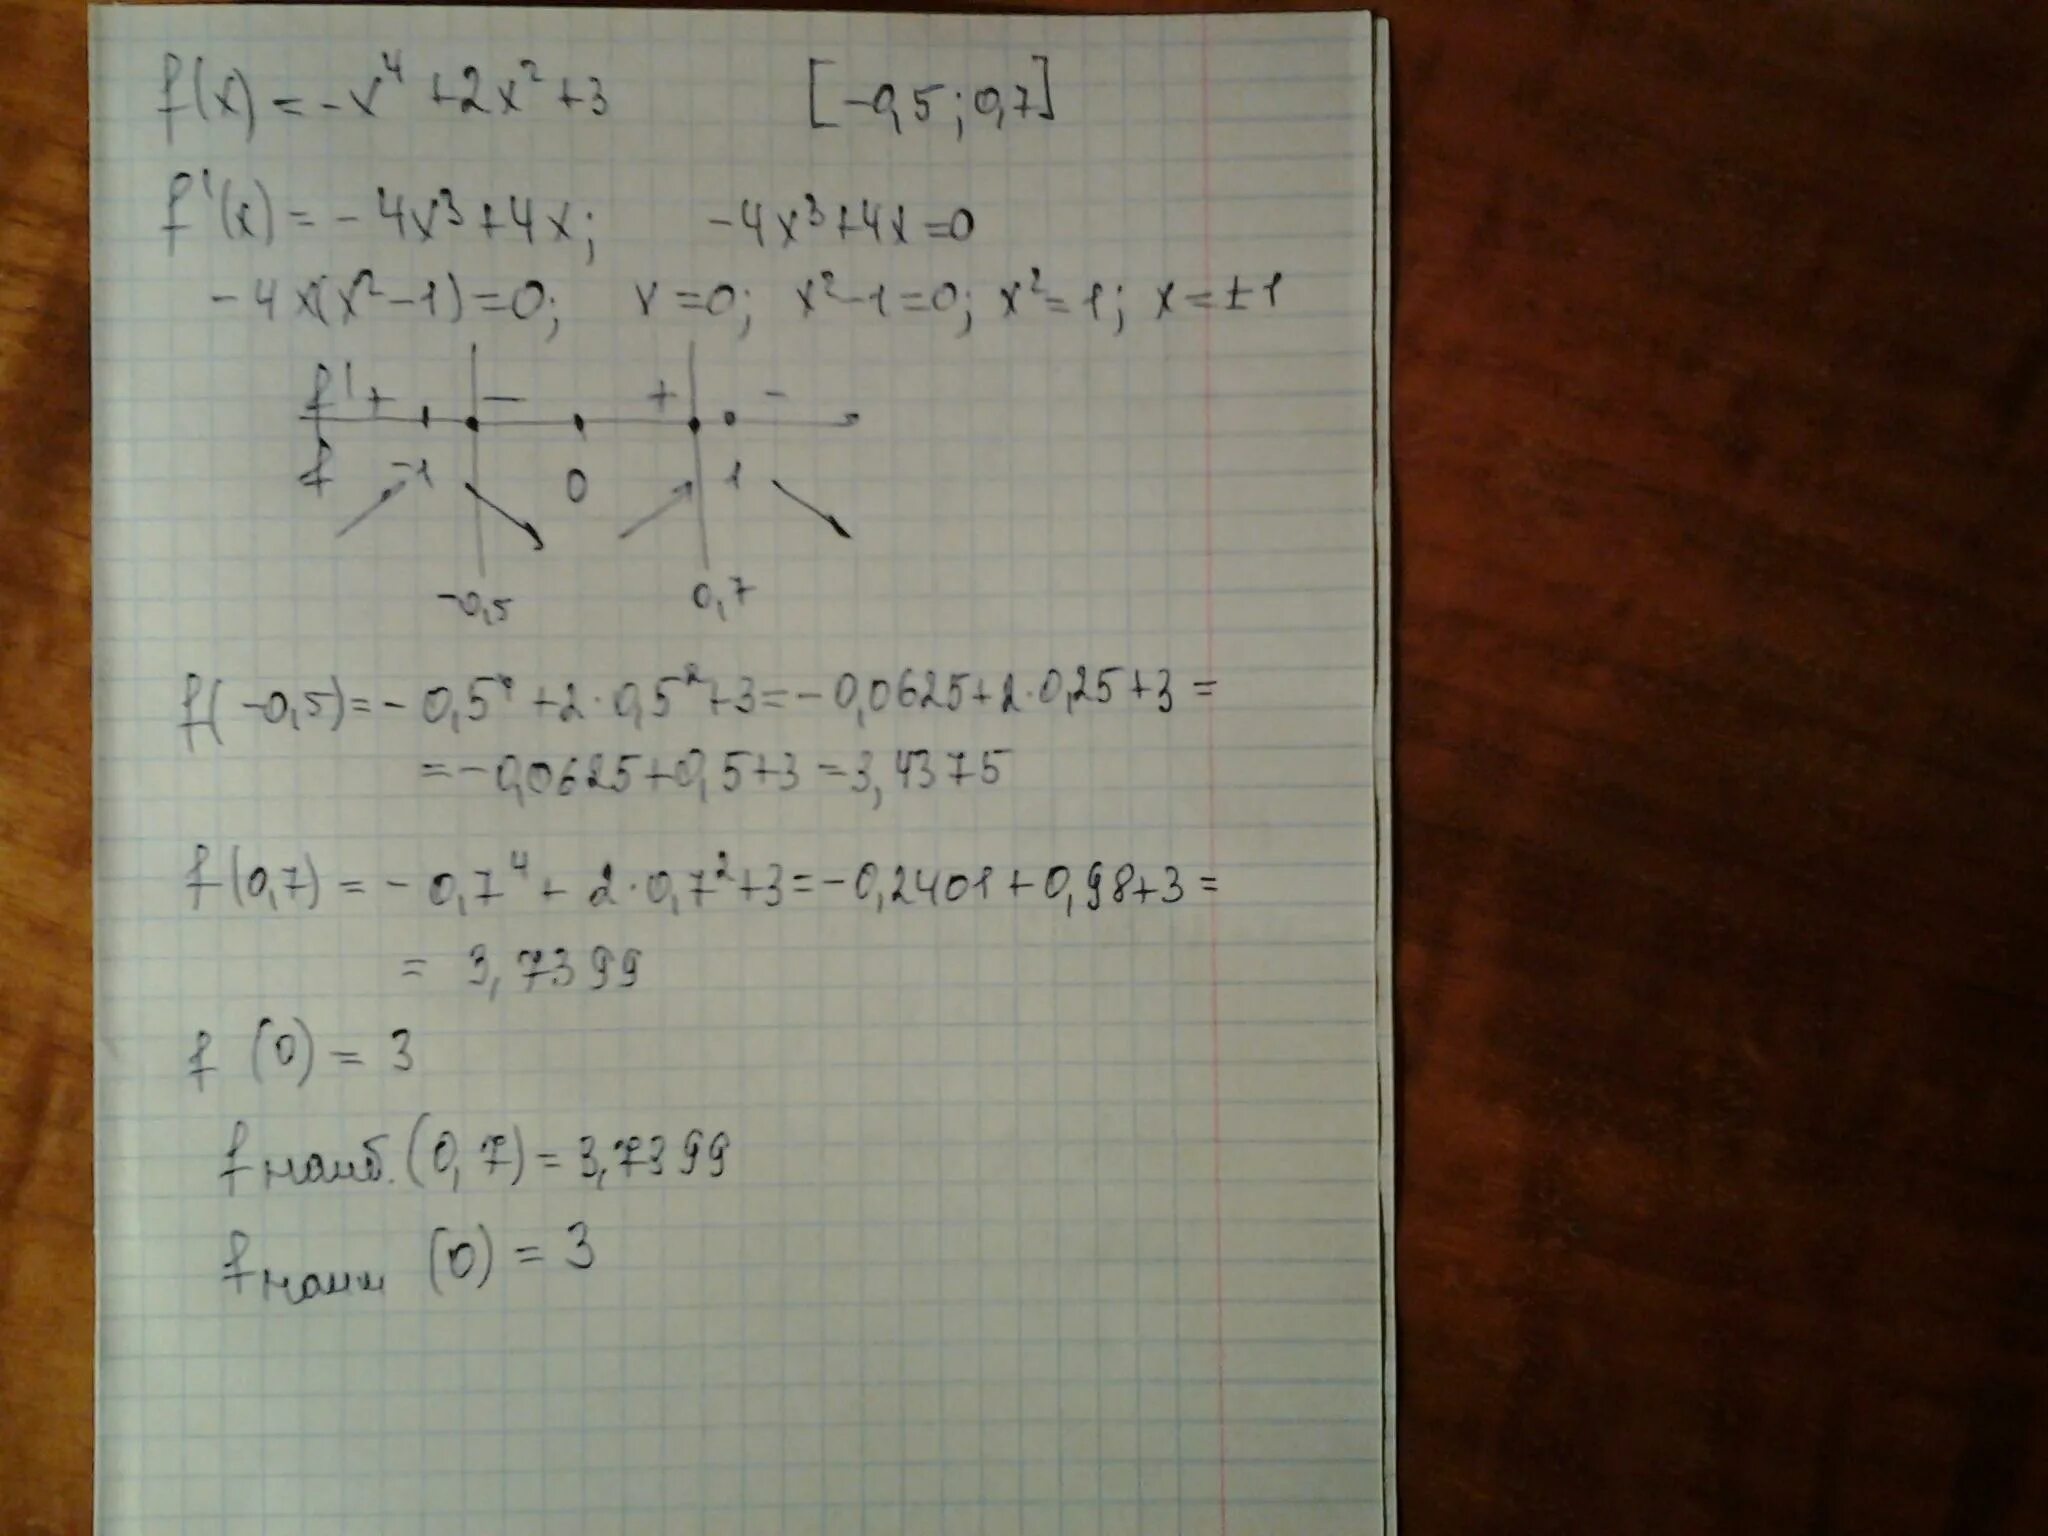 f(x) = -x⁴ + 2x² + 3 [-0,5; 0,7]
f'(x) = -4x³ + 4x; -4x³ + 4x = 0
-4x(x² - 1) = 0; x = 0; x² - 1 = 0; x² = 1; x = ±1
f' + - + -
f -1 0 1
-0,5 0,7
f(-0,5) = -0,5⁴ + 2·0,5² + 3 = -0,0625 + 2·0,25 + 3 =
= -0,0625 + 0,5 + 3 = 3,4375
f(0,7) = -0,7⁴ + 2·0,7² + 3 = -0,2401 + 0,98 + 3 =
= 3,7399
f(0) = 3
f наиб. (0,7) = 3,7399
f наим (0) = 3